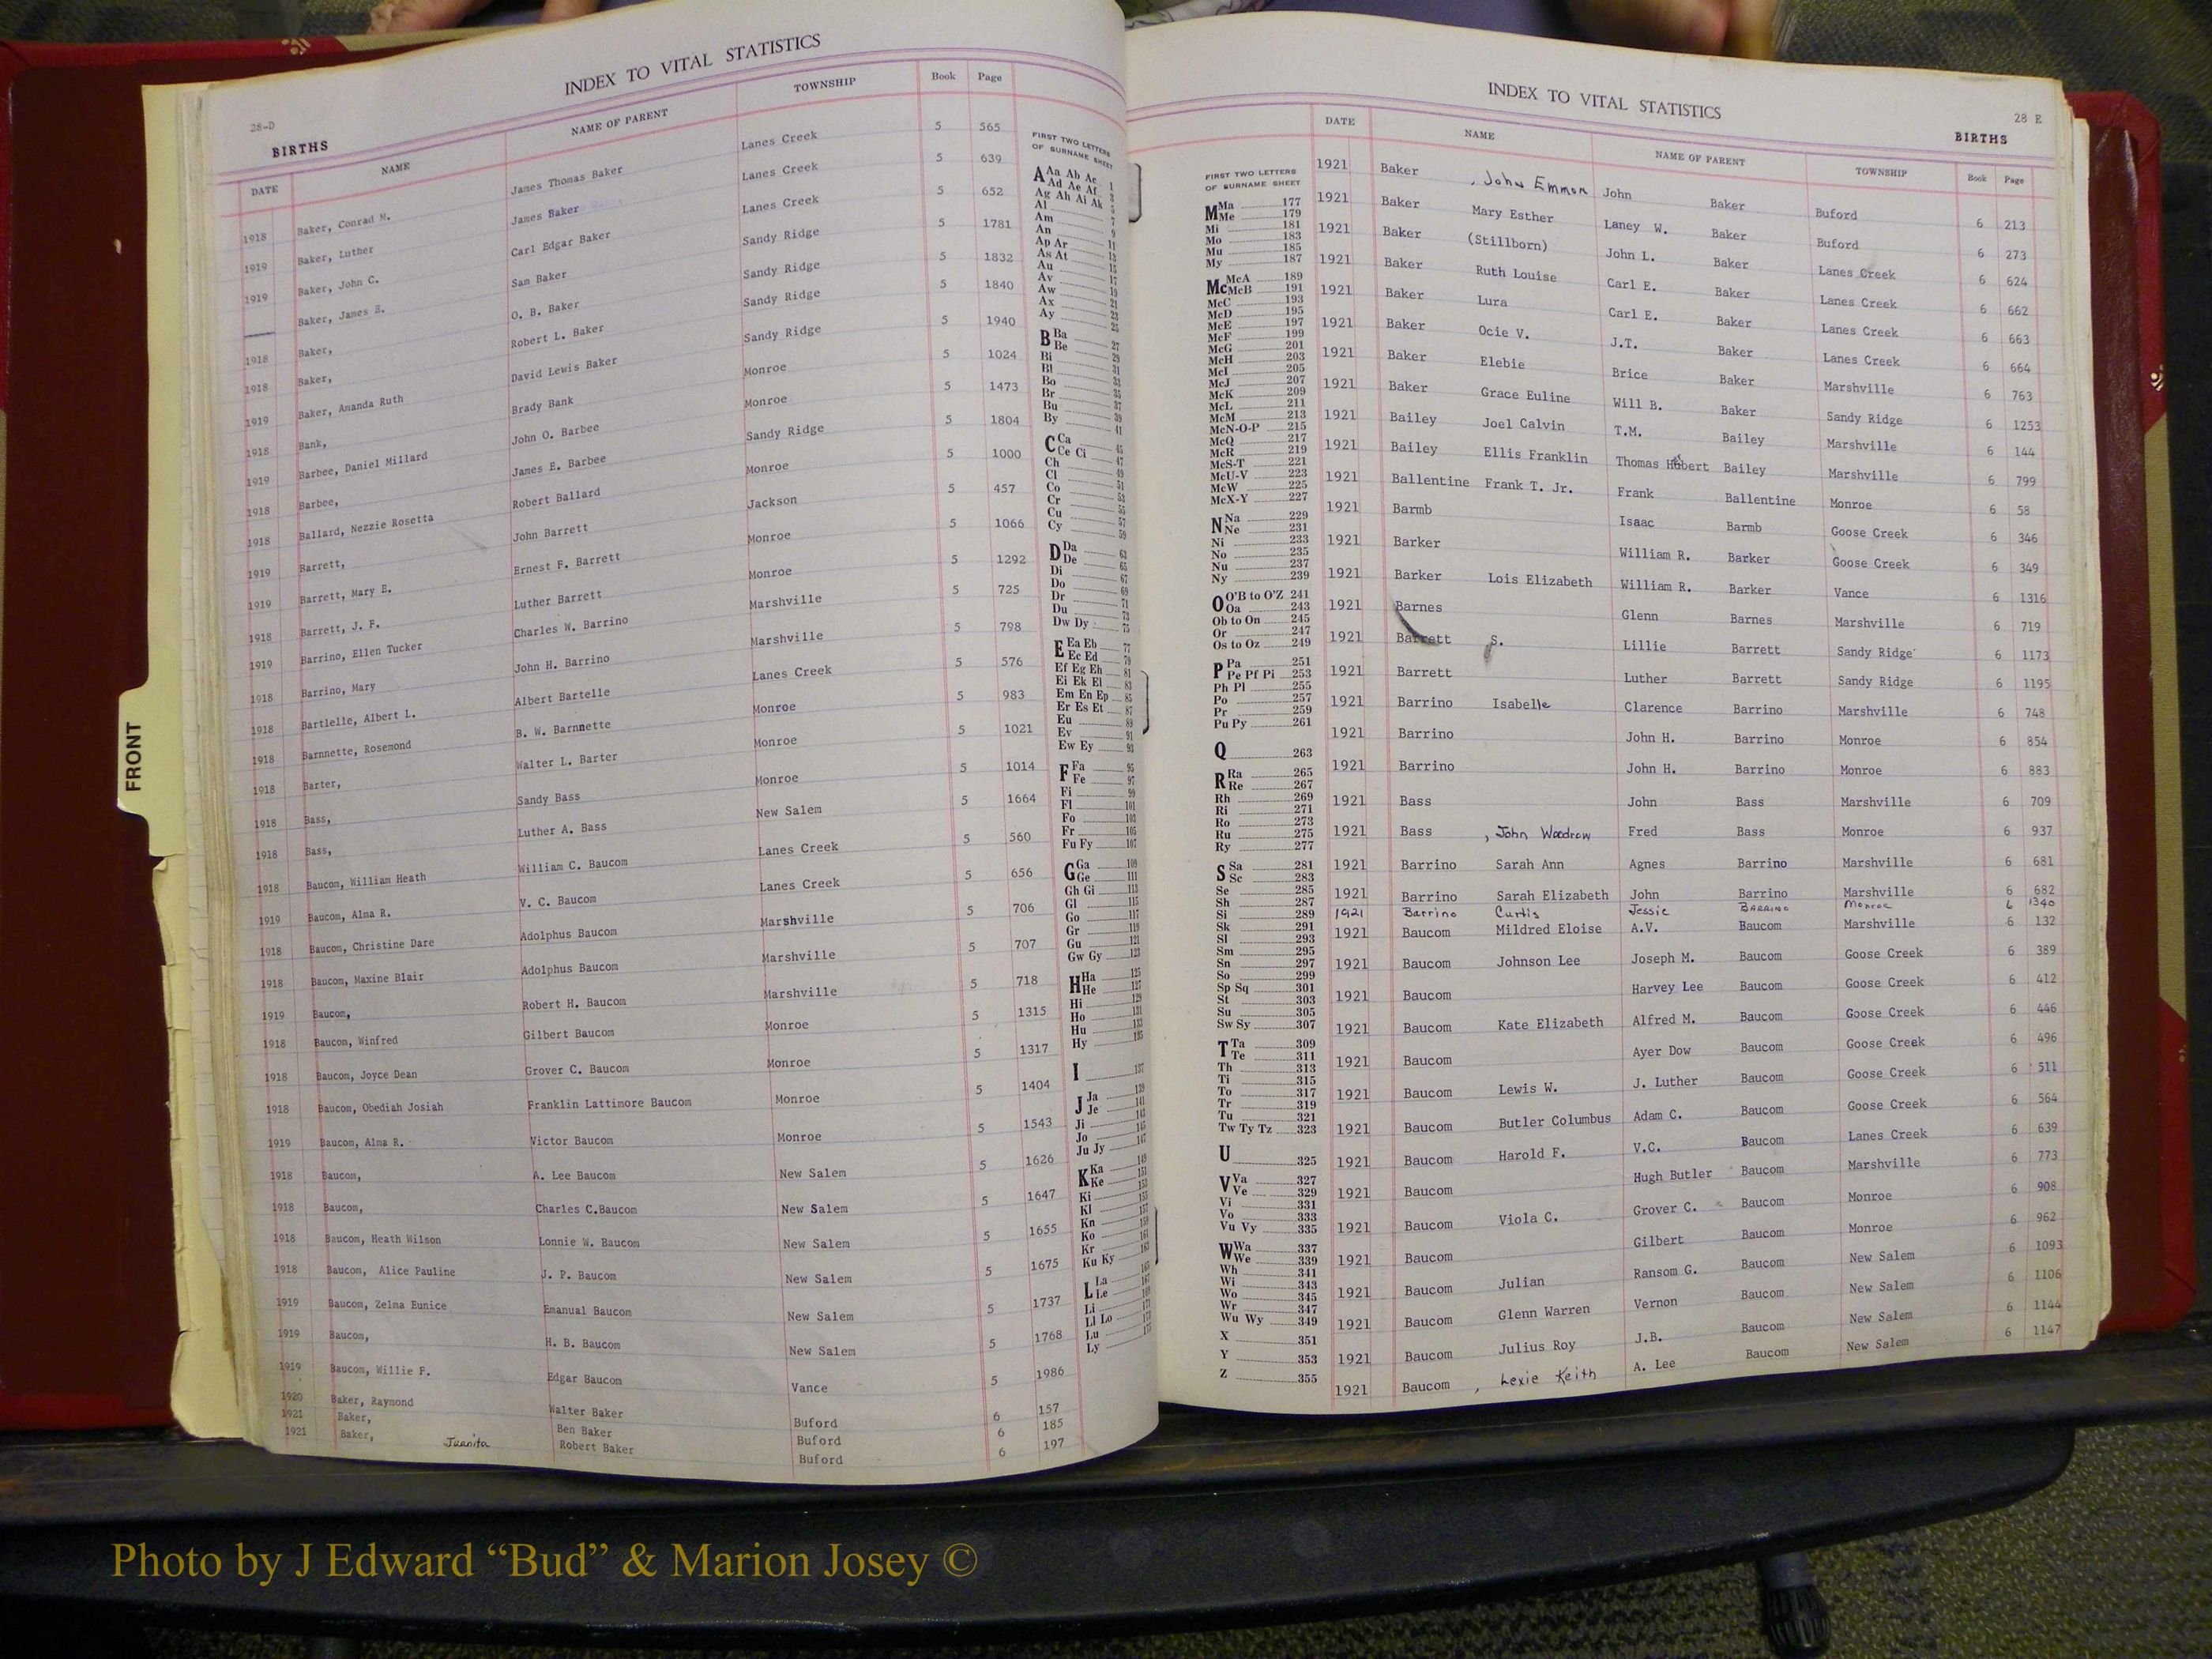 INDEX TO VITAL STATISTICS
28-D
BIRTHS
DATE NAME NAME OF PARENT TOWNSHIP Book Page
1918 Baker, Conrad M. James Thomas Baker Lanes Creek 5 565
1919 Baker, Luther James Baker Lanes Creek 5 639
1919 Baker, John C. Carl Edgar Baker Lanes Creek 5 652
Baker, James S. Sam Baker Sandy Ridge 5 1781
1918 Baker, O. B. Baker Sandy Ridge 5 1832
1918 Baker, Robert L. Baker Sandy Ridge 5 1840
1919 Baker, Amanda Ruth David Lewis Baker Sandy Ridge 5 1940
1918 Bank, Brady Bank Monroe 5 1024
1919 Barbee, Daniel Millard John O. Barbee Monroe 5 1473
1918 Barbee, James E. Barbee Sandy Ridge 5 1804
1918 Ballard, Nezzie Rosetta Robert Ballard Monroe 5 1000
1919 Barrett, John Barrett Jackson 5 457
1919 Barrett, Mary E. Ernest F. Barrett Monroe 5 1066
1918 Barrett, J. F. Luther Barrett Monroe 5 1292
1919 Barrino, Ellen Tucker Charles W. Barrino Marshville 5 725
1918 Barrino, Mary John H. Barrino Marshville 5 798
1918 Bartlelle, Albert L. Albert Bartelle Lanes Creek 5 576
1918 Barnnette, Rosemond B. W. Barnnette Monroe 5 983
1918 Barter, Walter L. Barter Monroe 5 1021
1918 Bass, Sandy Bass Monroe 5 1014
1918 Bass, Luther A. Bass New Salem 5 1664
1918 Baucom, William Heath William C. Baucom Lanes Creek 5 560
1919 Baucom, Alma R. V. C. Baucom Lanes Creek 5 656
1918 Baucom, Christine Dare Adolphus Baucom Marshville 5 706
1918 Baucom, Maxine Blair Adolphus Baucom Marshville 5 707
1919 Baucom, Robert H. Baucom Marshville 5 718
1918 Baucom, Winfred Gilbert Baucom Monroe 5 1315
1918 Baucom, Joyce Dean Grover C. Baucom Monroe 5 1317
1918 Baucom, Obediah Josiah Franklin Lattimore Baucom Monroe 5 1404
1919 Baucom, Alma R. Victor Baucom Monroe 5 1543
1918 Baucom, A. Lee Baucom New Salem 5 1626
1918 Baucom, Charles C.Baucom New Salem 5 1647
1918 Baucom, Heath Wilson Lonnie W. Baucom New Salem 5 1655
1918 Baucom, Alice Pauline J. P. Baucom New Salem 5 1675
1919 Baucom, Zelma Eunice Emanual Baucom New Salem 5 1737
1919 Baucom, H. B. Baucom New Salem 5 1768
1919 Baucom, Willie F. Edgar Baucom Vance 5 1986
1920 Baker, Raymond Walter Baker Buford 6 157
1921 Baker, Ben Baker Buford 6 185
1921 Baker, Juanita Robert Baker Buford 6 197
FRONT
FIRST TWO LETTERS
OF SURNAME SHEET
A Aa Ab Ac 1
Ad Ae Af 3
Ag Ah Ai Ak 5
Al 7
Am 9
An 11
Ap Ar 13
As At 15
Au 17
Av 19
Aw 21
Ax 23
Ay 25
B Ba 27
Be 29
Bi 31
Bl 33
Bo 35
Br 37
Bu 39
By 41
C Ca 45
Ce Ci 47
Ch 49
Cl 51
Co 53
Cr 55
Cu 57
Cy 59
D Da 63
De 65
Di 67
Do 69
Dr 71
Du 73
Dw Dy 75
E Ea Eb 77
Ec Ed 79
Ef Eg Eh 81
Ei Ek El 83
Em En Ep 85
Er Es Et 87
Eu 89
Ev 91
Ew Ey 93
F Fa 95
Fe 97
Fi 99
Fl 101
Fo 103
Fr 105
Fu Fy 107
G Ga 109
Ge 111
Gh Gi 113
Gl 115
Go 117
Gr 119
Gu 121
Gw Gy 123
H Ha 125
He 127
Hi 129
Ho 131
Hu 133
Hy 135
I 137
J Ja 139
Je 141
Ji 143
Jo 145
Ju Jy 147
K Ka 149
Ke 151
Ki 153
Kl 155
Kn 157
Ko 159
Kr 161
Ku Ky 163
L La 165
Le 167
Li 169
Ll Lo 171
Lu 173
Ly 175
INDEX TO VITAL STATISTICS
28 E
BIRTHS
FIRST TWO LETTERS
OF SURNAME SHEET
M Ma 177
Me 179
Mi 181
Mo 183
Mu 185
My 187
Mc McA 189
McB 191
McC 193
McD 195
McE 197
McF 199
McG 201
McH 203
McI 205
McJ 207
McK 209
McL 211
McM 213
McN-O-P 215
McQ 217
McR 219
McS-T 221
McU-V 223
McW 225
McX-Y 227
N Na 229
Ne 231
Ni 233
No 235
Nu 237
Ny 239
O O'B to O'Z 241
Oa 243
Ob to On 245
Or 247
Os to Oz 249
P Pa 251
Pe Pf Pi 253
Ph Pl 255
Po 257
Pr 259
Pu Py 261
Q 263
R Ra 265
Re 267
Rh 269
Ri 271
Ro 273
Ru 275
Ry 277
S Sa 281
Sc 283
Se 285
Sh 287
Si 289
Sk 291
Sl 293
Sm 295
Sn 297
So 299
Sp Sq 301
St 303
Su 305
Sw Sy 307
T Ta 309
Te 311
Th 313
Ti 315
To 317
Tr 319
Tu 321
Tw Ty Tz 323
U 325
V Va 327
Ve 329
Vi 331
Vo 333
Vu Vy 335
W Wa 337
We 339
Wh 341
Wi 343
Wo 345
Wr 347
Wu Wy 349
X 351
Y 353
Z 355
DATE NAME NAME OF PARENT TOWNSHIP Book Page
1921 Baker , John Emmon John Baker Buford 6 213
1921 Baker Mary Esther Laney W. Baker Buford 6 273
1921 Baker (Stillborn) John L. Baker Lanes Creek 6 624
1921 Baker Ruth Louise Carl E. Baker Lanes Creek 6 662
1921 Baker Lura Carl E. Baker Lanes Creek 6 663
1921 Baker Ocie V. J.T. Baker Lanes Creek 6 664
1921 Baker Elebie Brice Baker Marshville 6 763
1921 Baker Grace Euline Will B. Baker Sandy Ridge 6 1253
1921 Bailey Joel Calvin T.M. Bailey Marshville 6 144
1921 Bailey Ellis Franklin Thomas Hobert Bailey Marshville 6 799
1921 Ballentine Frank T. Jr. Frank Ballentine Monroe 6 58
1921 Barmb Isaac Barmb Goose Creek 6 346
1921 Barker William R. Barker Goose Creek 6 349
1921 Barker Lois Elizabeth William R. Barker Vance 6 1316
1921 Barnes Glenn Barnes Marshville 6 719
1921 Barrett S. Lillie Barrett Sandy Ridge 6 1173
1921 Barrett Luther Barrett Sandy Ridge 6 1195
1921 Barrino Isabelle Clarence Barrino Marshville 6 748
1921 Barrino John H. Barrino Monroe 6 854
1921 Barrino John H. Barrino Monroe 6 883
1921 Bass John Bass Marshville 6 709
1921 Bass , John Woodrow Fred Bass Monroe 6 937
1921 Barrino Sarah Ann Agnes Barrino Marshville 6 681
1921 Barrino Sarah Elizabeth John Barrino Marshville 6 682
1921 Barrino Curtis Jessie Barrino Monroe 6 1340
1921 Baucom Mildred Eloise A.V. Baucom Marshville 6 132
1921 Baucom Johnson Lee Joseph M. Baucom Goose Creek 6 389
1921 Baucom Harvey Lee Baucom Goose Creek 6 412
1921 Baucom Kate Elizabeth Alfred M. Baucom Goose Creek 6 446
1921 Baucom Ayer Dow Baucom Goose Creek 6 496
1921 Baucom Lewis W. J. Luther Baucom Goose Creek 6 511
1921 Baucom Butler Columbus Adam C. Baucom Goose Creek 6 564
1921 Baucom Harold F. V.C. Baucom Lanes Creek 6 639
1921 Baucom Hugh Butler Baucom Marshville 6 773
1921 Baucom Viola C. Grover C. Baucom Monroe 6 908
1921 Baucom Gilbert Baucom Monroe 6 962
1921 Baucom Julian Ransom G. Baucom New Salem 6 1093
1921 Baucom Glenn Warren Vernon Baucom New Salem 6 1106
1921 Baucom Julius Roy J.B. Baucom New Salem 6 1144
1921 Baucom , Lexie Keith A. Lee Baucom New Salem 6 1147
Photo by J Edward “Bud” & Marion Josey ©